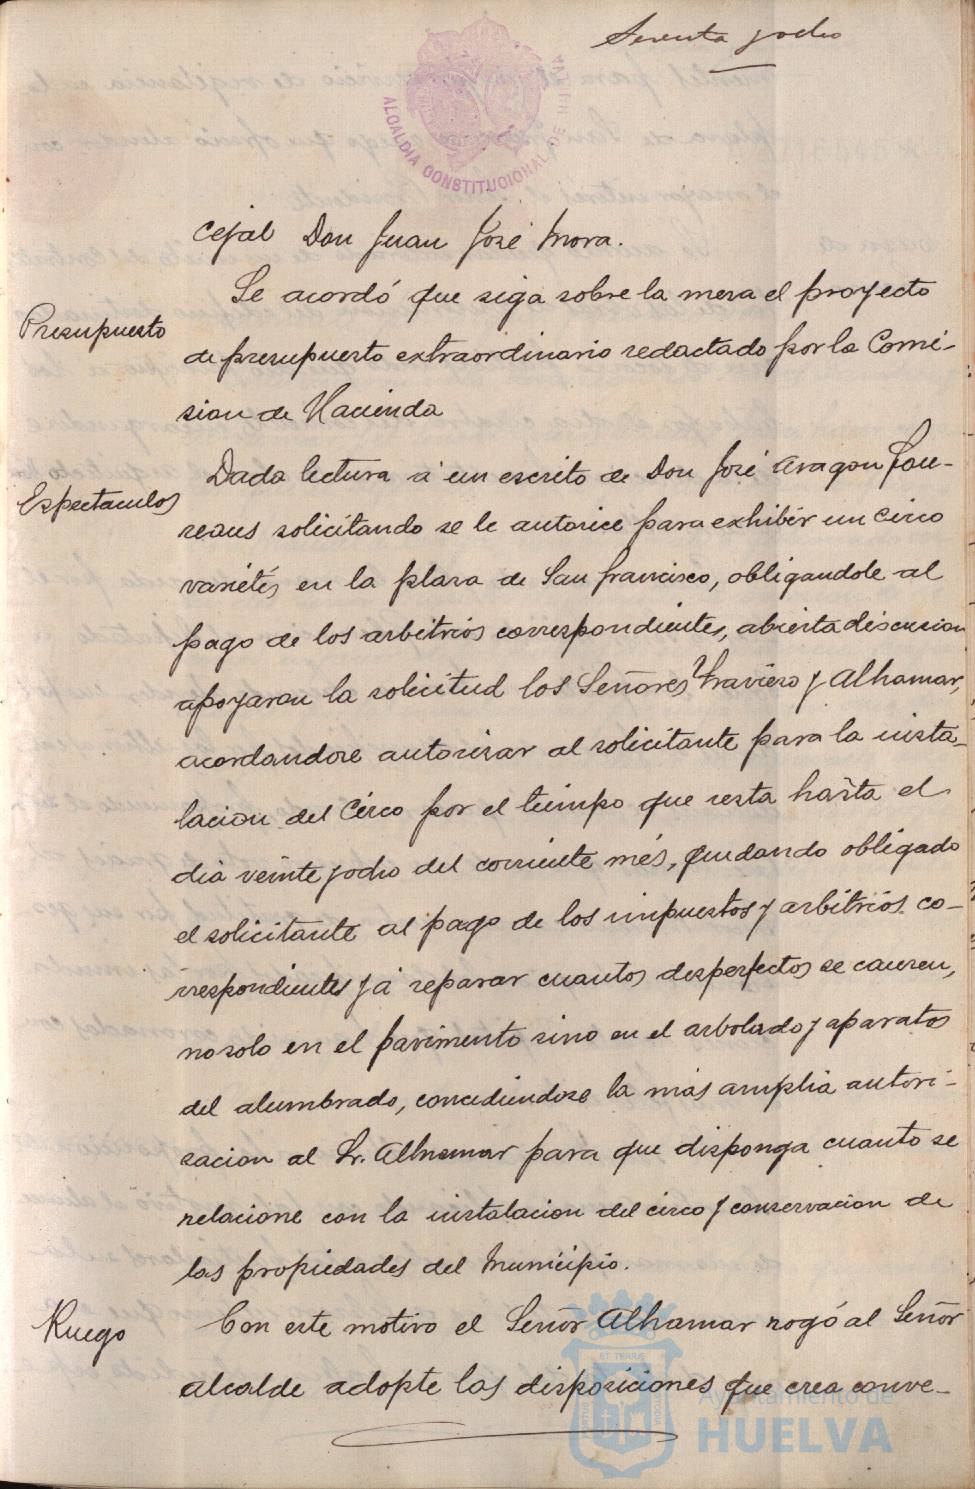 Sesenta y ocho
ALCALDIA CONSTITUCIONAL DE HUELVA
cejal Don Juan José Mora.
Se acordó que siga sobre la mesa el proyecto
Presupuesto
de presupuesto extraordinario redactado por la Comi-
sion de Hacienda
Dada lectura á un escrito de Don José Aragon
Espectaculos
solicitando se le autorice para exhibir un circo
varietés en la plaza de San Francisco, obligandole al
pago de los arbitrios correspondientes, abierta discusion
apoyaron la solicitud los Señores Traviero y Alhamar,
acordandose autorizar al solicitante para la insta-
lacion del Circo por el tiempo que resta hasta el
dia veinte y ocho del corriente més, quedando obligado
el solicitante al pago de los impuestos y arbitrios co-
rrespondientes y á reparar cuantos desperfectos se causen,
no solo en el pavimento sino en el arbolado y aparatos
del alumbrado, concediendose la más amplia autori-
zacion al Sr. Alhamar para que disponga cuanto se
relacione con la instalacion del circo y conservacion de
las propiedades del Municipio.
Ruego
Con este motivo el Señor Alhamar rogó al Señor
alcalde adopte las disposiciones que crea conve-
Ayuntamiento de
HUELVA